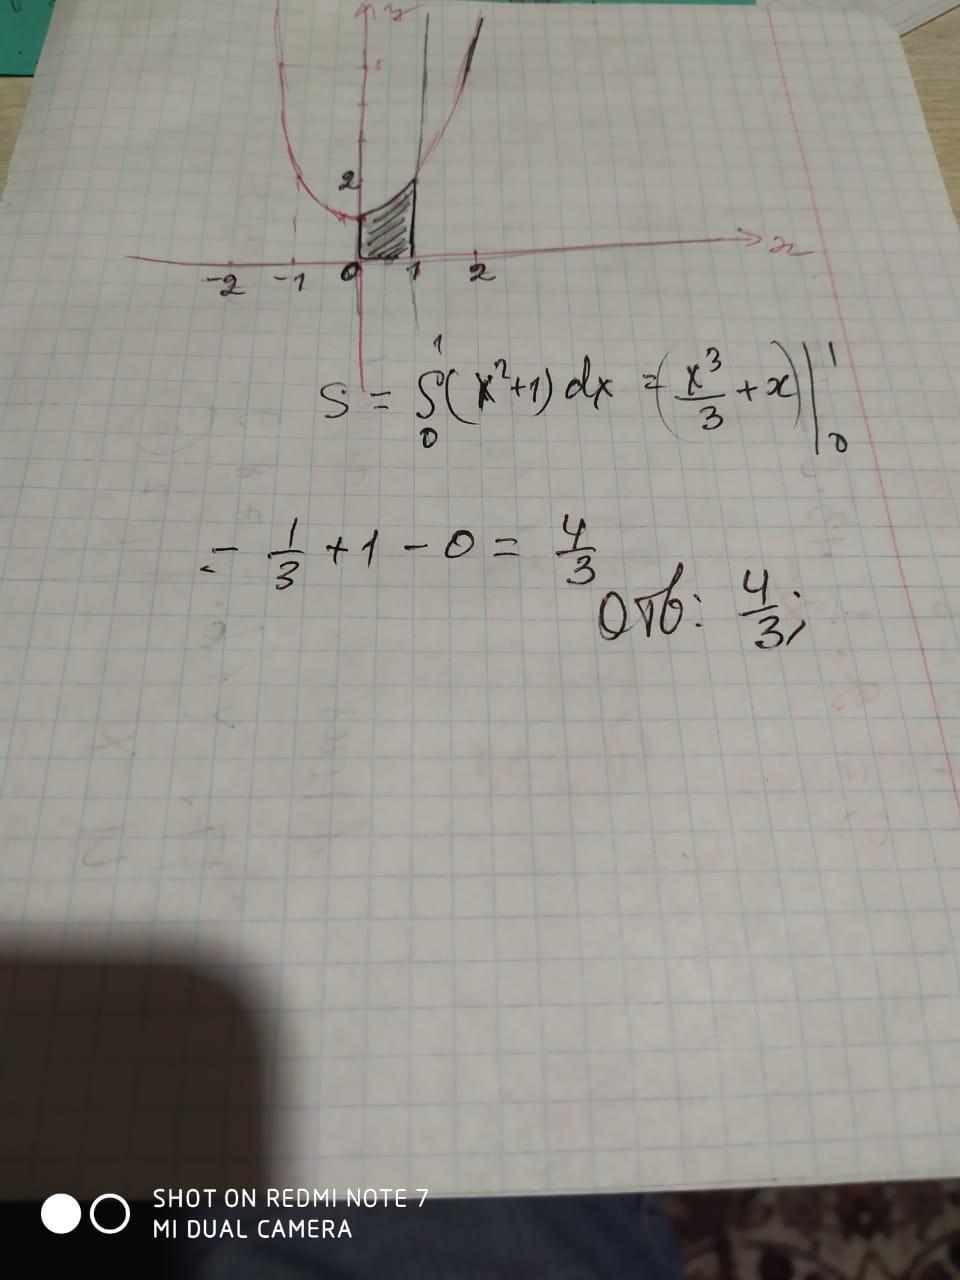 y
2
-2 -1 0 1 2 x
S = ∫₀¹ (x²+1) dx = (x³/3 + x) |₀¹
= 1/3 + 1 - 0 = 4/3
Отв: 4/3;
SHOT ON REDMI NOTE 7
MI DUAL CAMERA